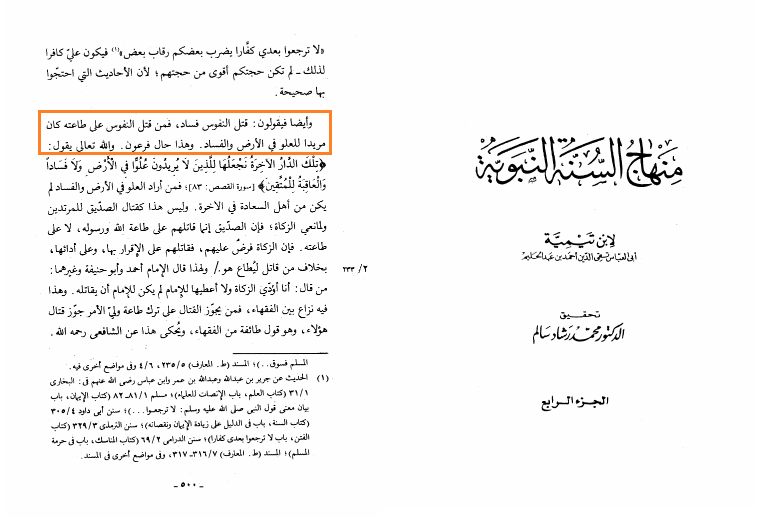 «لا ترجعوا بعدي كفَّارا يضرب بعضكم رقاب بعض»(١) فيكون عليّ كافرا
لذلك ـ لم تكن حجتكم أقوى من حجتهم؛ لأن الأحاديث التي احتجّوا
بها صحيحة .
وأيضا فيقولون: قتل النفوس فساد، فمن قتل النفوس على طاعته كان
مريدا للعلو في الأرض والفساد. وهذا حال فرعون. والله تعالى يقول:
﴿تِلْكَ الدَّارُ الآخِرَةُ نَجْعَلُهَا لِلَّذِينَ لَا يُرِيدُونَ عُلُوًّا فِي الْأَرْضِ وَلَا فَسَاداً
وَالْعَاقِبَةُ لِلْمُتَّقِينَ﴾ [سورة القصص: ٨٣]؛ فمن أراد العلو في الأرض والفساد لم
يكن من أهل السعادة في الآخرة. وليس هذا كقتال الصدّيق للمرتدين
ولمانعي الزكاة؛ فإن الصدّيق إنما قاتلهم على طاعة الله ورسوله، لا على
طاعته. فإن الزكاة فرضٌ عليهم، فقاتلهم على الإقرار بها، وعلى أدائها،
بخلاف من قاتل ليُطاع هو./ ولهذا قال الإمام أحمد وأبو حنيفة وغيرهما:
٢/ ٢٣٣
من قال: أنا أؤدّي الزكاة ولا أعطيها للإمام لم يكن للإمام أن يقاتله. وهذا
فيه نزاع بين الفقهاء، فمن يجوّز القتال على ترك طاعة وليّ الأمر جوّز قتال
هؤلاء، وهو قول طائفة من الفقهاء، ويُحكى هذا عن الشافعي رحمه الله.
المسلم فسوق. .)؛ المسند (ط. المعارف) ٢٣٥/٥، ٤/٦ وفى مواضع أخرى فيه.
(١) الحديث عن جرير بن عبدالله وعبدالله بن عمر وابن عباس رضى الله عنهم فى: البخارى
٣١/١ (كتاب العلم، باب الإنصات للعلماء)؛ مسلم ٨١/١ـ ٨٢ (كتاب الإيمان، باب
بيان معنى قول النبى صلى الله عليه وسلم: لا ترجعوا. . .)؛ سنن أبى داود ٣٠٥/٤
(كتاب السنة، باب فى الدليل على زيادة الإيمان ونقصانه)؛ سنن الترمذى ٣٢٩/٣ (كتاب
الفتن، باب لا ترجعوا بعدى كفارا)؛ سنن الدارمى ٦٩/٢ (كتاب المناسك، باب فى حرمة
المسلم)؛ المسند (ط. الحلبى) ٣١٦/٧ـ٣١٧، وفى مواضع أخرى فى المسند.
ـ ٥٠٠ ـ
منهاج السنة النبوية
لابن تيمية
أبي العباس تقي الدين أحمد بن عبد الحليم
تحقيق
الدكتور محمد رشاد سالم
الجزء الرابع